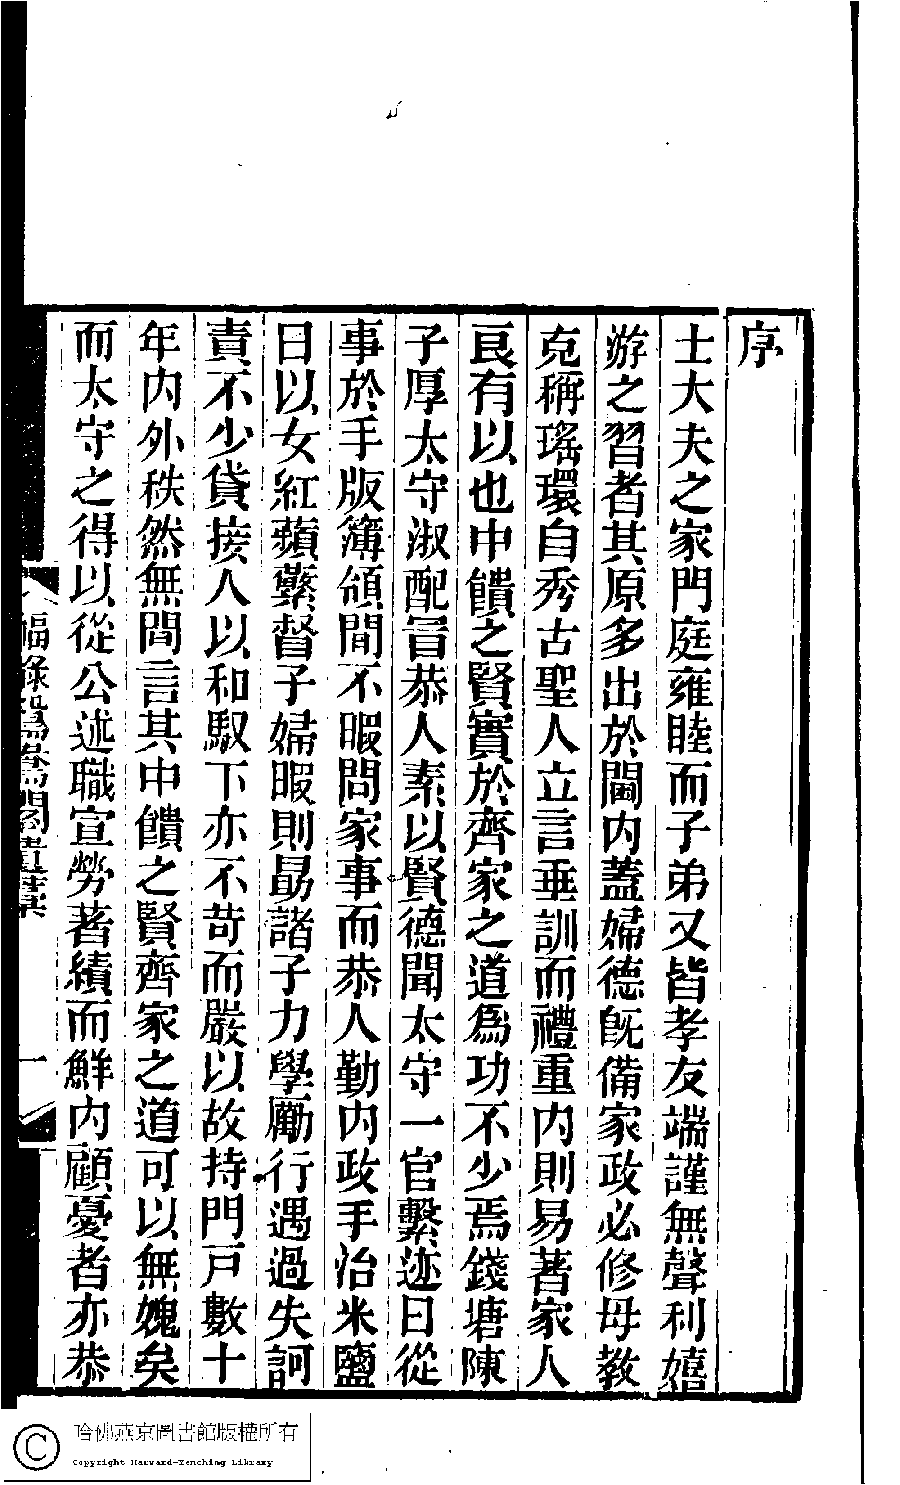 序
士大夫之家門庭雍睦而子弟又皆孝友端謹無聲利嬉
游之習者其原多出於閫内蓋婦德旣備家政必修母教
克稱瑤環自秀古聖人立言垂訓而禮重内則易著家人
良有以也中饋之賢實於齊家之道爲功不少焉錢塘陳
子厚太守淑配冒恭人素以賢德聞太守一官繫迹日從
事於手版簿領間不暇問家事而恭人勤内政手治米鹽
日以女紅蘋蘩督子婦暇則勗諸子力學勵行遇過失訶
責不少貸接人以和馭下亦不苛而嚴以故持門戸數十
年内外秩然無間言其中饋之賢齊家之道可以無媿矣
而太守之得以從公述職宣勞著績而鮮内顧憂者亦恭
福祿鴛鴦閣遺藁
一
哈佛燕京圖書館版權所有
Copyright Harvard-Yenching Library